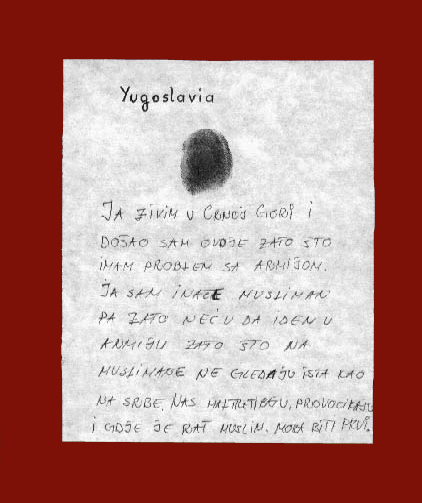 Yugoslavia
JA ŽIVIM U CRNOJ GORI i
DOŠAO SAM OVDJE ZATO ŠTO
IMAM PROBLEM SA ARMIJOM.
JA SAM INAČE MUSLIMAN
PA ZATO NEĆU DA IDEM U
ARMIJU ZATO ŠTO NA
MUSLIMANE NE GLEDAJU ISTA KAO
NA SRBE. NAS MALTRETIRAJU, PROVOCIRAJU
i GDJE JE RAT MUSLIM. MORA BITI PRVI.